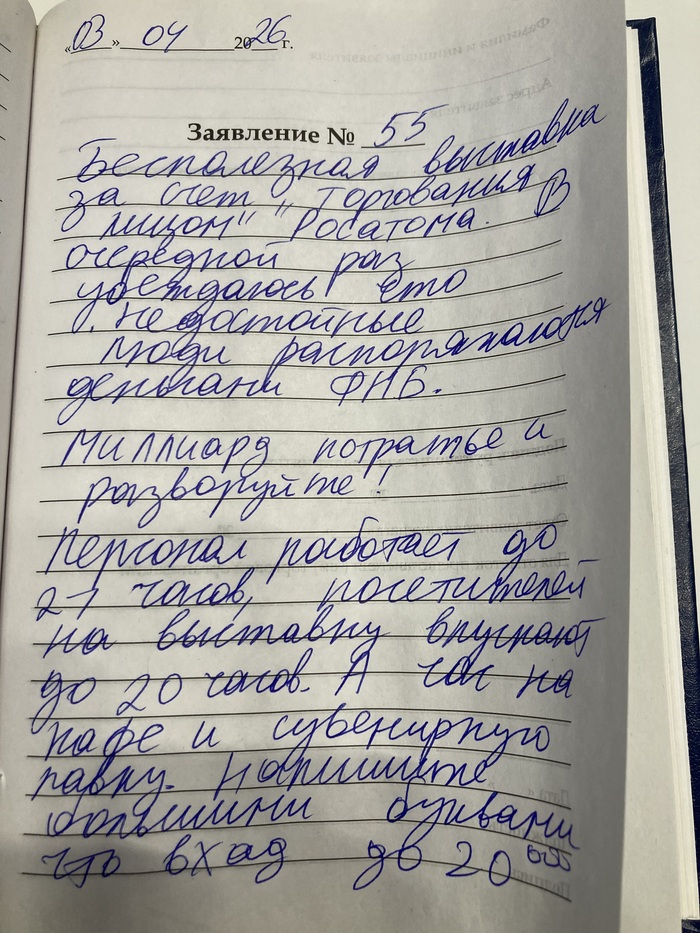 «03» 04 2026 г.
Заявление № 55
Бесполезная выставка
за счет "торгования
лицом" "Росатома. В
очередной раз
убеждаюсь что
недостойные
люди распоряжаются
деньгами ФНБ.
Миллиард потратье и
разворуйте!
Персонал работает до
21 часов, посетителей
на выставку впускают
до 20 часов. А час на
кафе и сувенирную
лавку. Напишите
большими буквами
что вход до 20